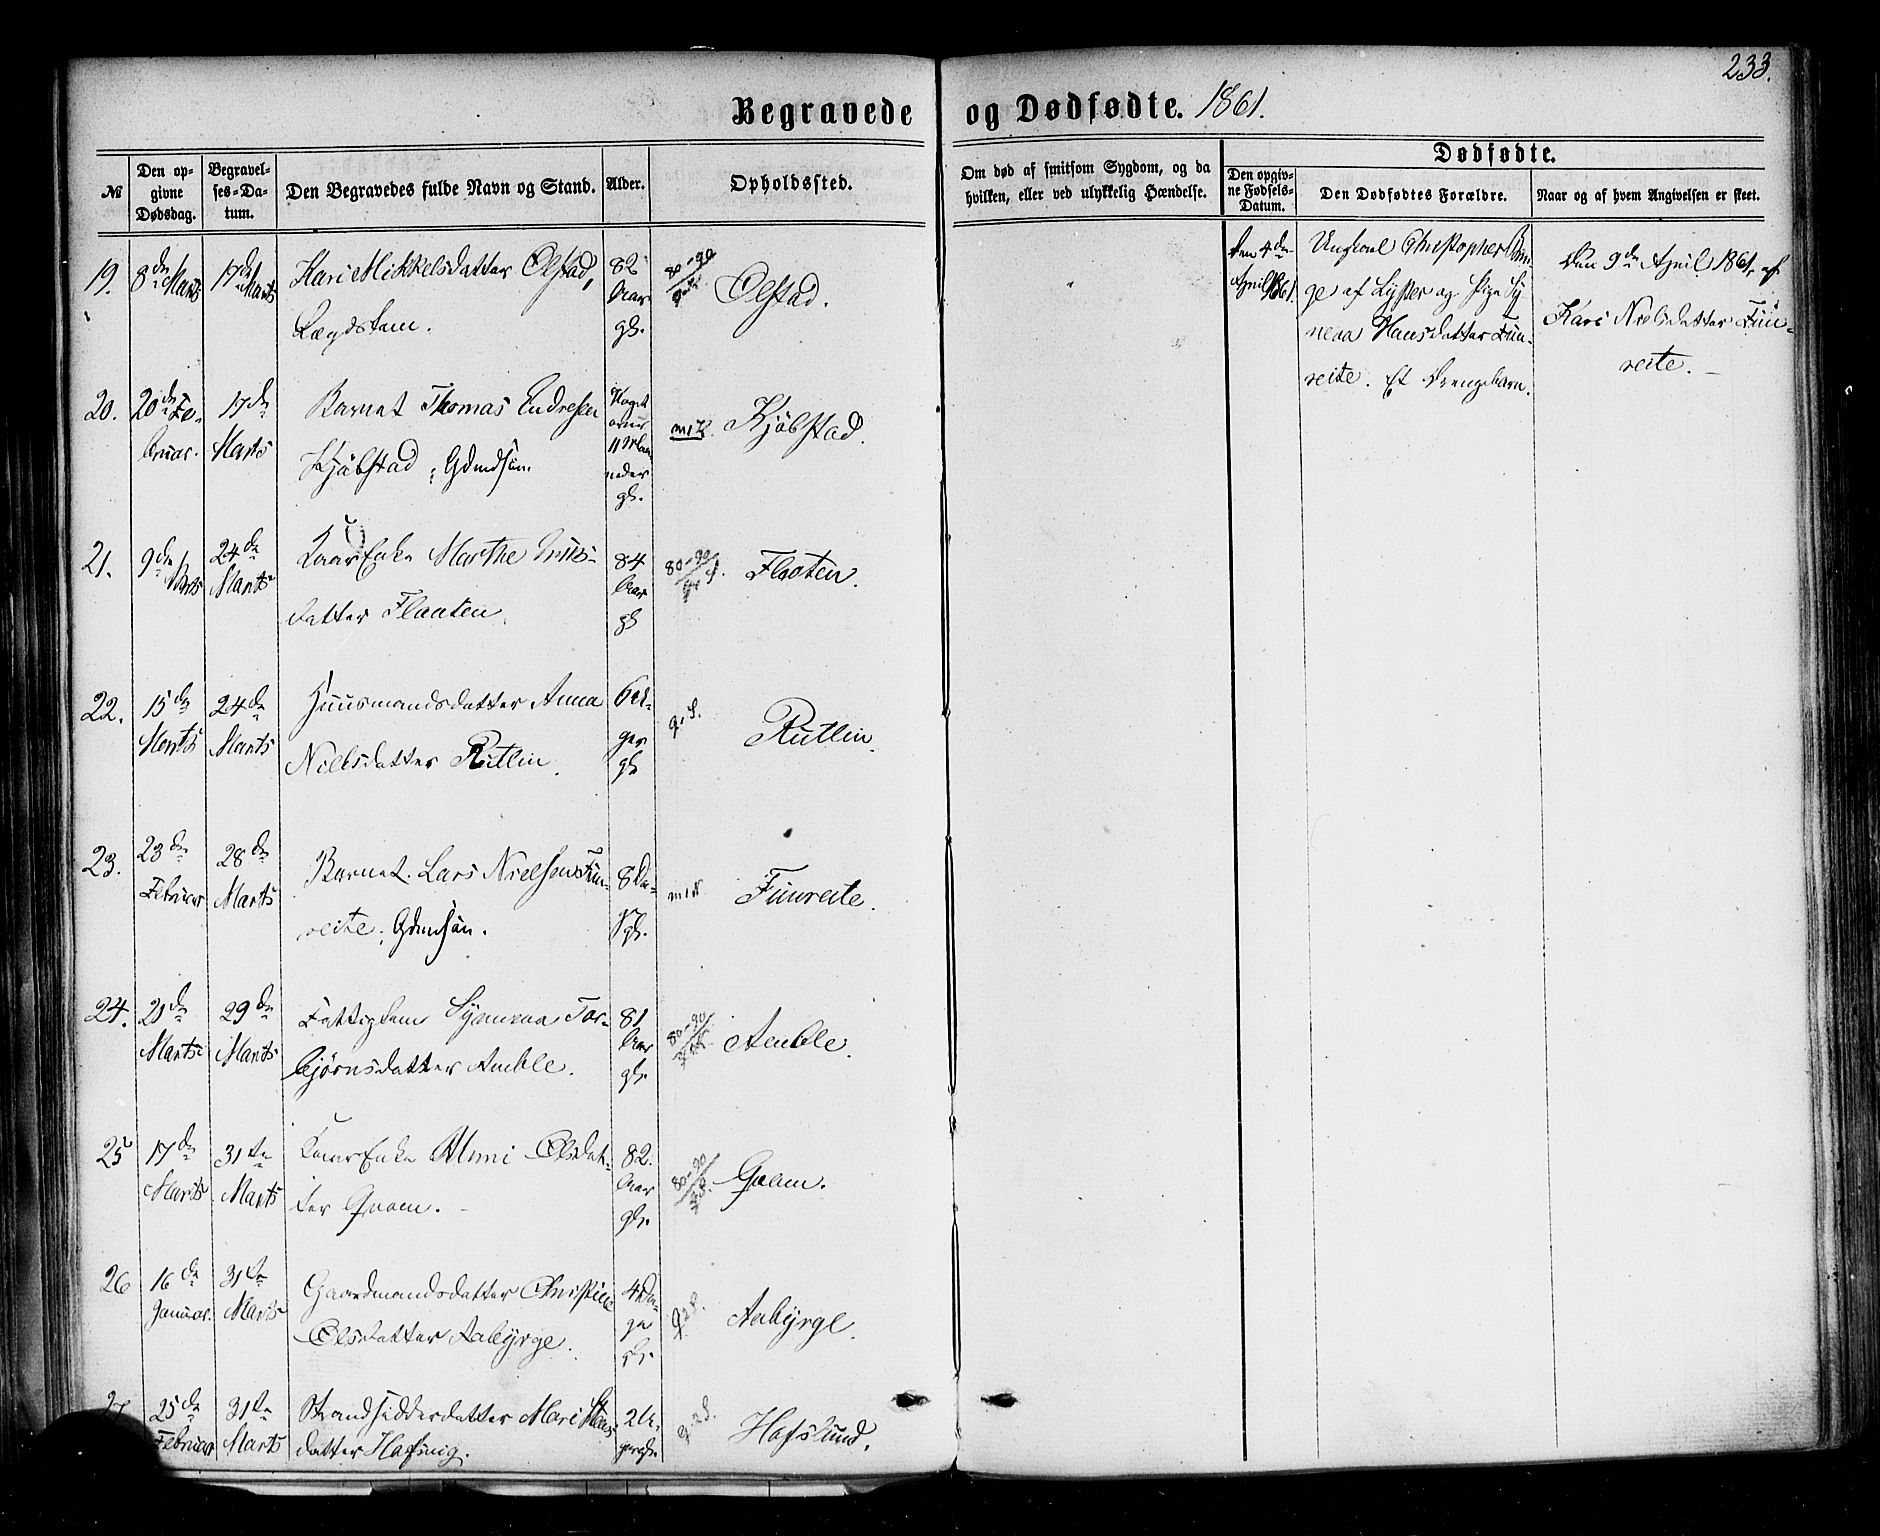 233.
Begravede og Dødfødte. 1861.
№
Den op-
givne
Dødsdag.
Begravel-
ses-Da-
tum.
Den Begravedes fulde Navn og Stand.
Alder.
Opholdssted.
Om død af smitsom Sygdom, og da
hvilken, eller ved ulykkelig Hændelse.
Dødfødte.
Den opgiv-
ne Fødsels-
Datum.
Den Dødfødtes Forældre.
Naar og af hvem Angivelsen er skeet.
19. 8de Marts 17de Marts Kari Mikkelsdatter Ølstad,
Lægdslem.
82
Aar
gl.
80-90
Ølstad.
Den 4de
April 1861.
Ungkarl Christopher
ge af Lyster og Pige Sy
neva Hansdatter Fuu-
reite. Et Drengebarn.
Den 9de April 1861, af
Kari Nielsdatter Fuu-
reite. –
20. 20de Fe-
bruar.
17de
Marts
Barnet Thomas Endresen
Kjøbstad; Gdmdsøn.
Noget
over
11 Maa-
neder
gl.
Kjøbstad.
21. 9de
Marts
24de
Marts
Kaar Enke Marthe
datter Flaaten.
84
Aar
gl
80-90
Flaaten.
22. 15de
Marts
24de
Marts
Huusmandsdatter Anna
Nielsdatter Rutlin.
6 U-
ger
gl
Rutlin.
23. 23de
Februar
28de
Marts
Barnet Lars Nielsen Fuu-
reite; Gdmdsøn.
8 Da-
ge gl.
Fuureite.
24. 21de
Marts
29de
Marts
Fattiglem Synneva Tor-
bjørnsdatter Amble.
81
Aar
gl.
80-90
Amble.
25 17de
Marts
31te
Marts
Kaar Enke Anni Olsdat-
ter Qvam. –
82.
Aar
gl.
80-90
Qvam.
26 16de
Januar.
31te
Marts
Gaardmandsdatter Christine
Olsdatter Aabyrge.
4 Da-
ge
gl.
Aabyrge.
27 25de
Februar
31te
Marts
Strandsidderdatter Mari
datter
2 U-
ger gl.
Hafslund.